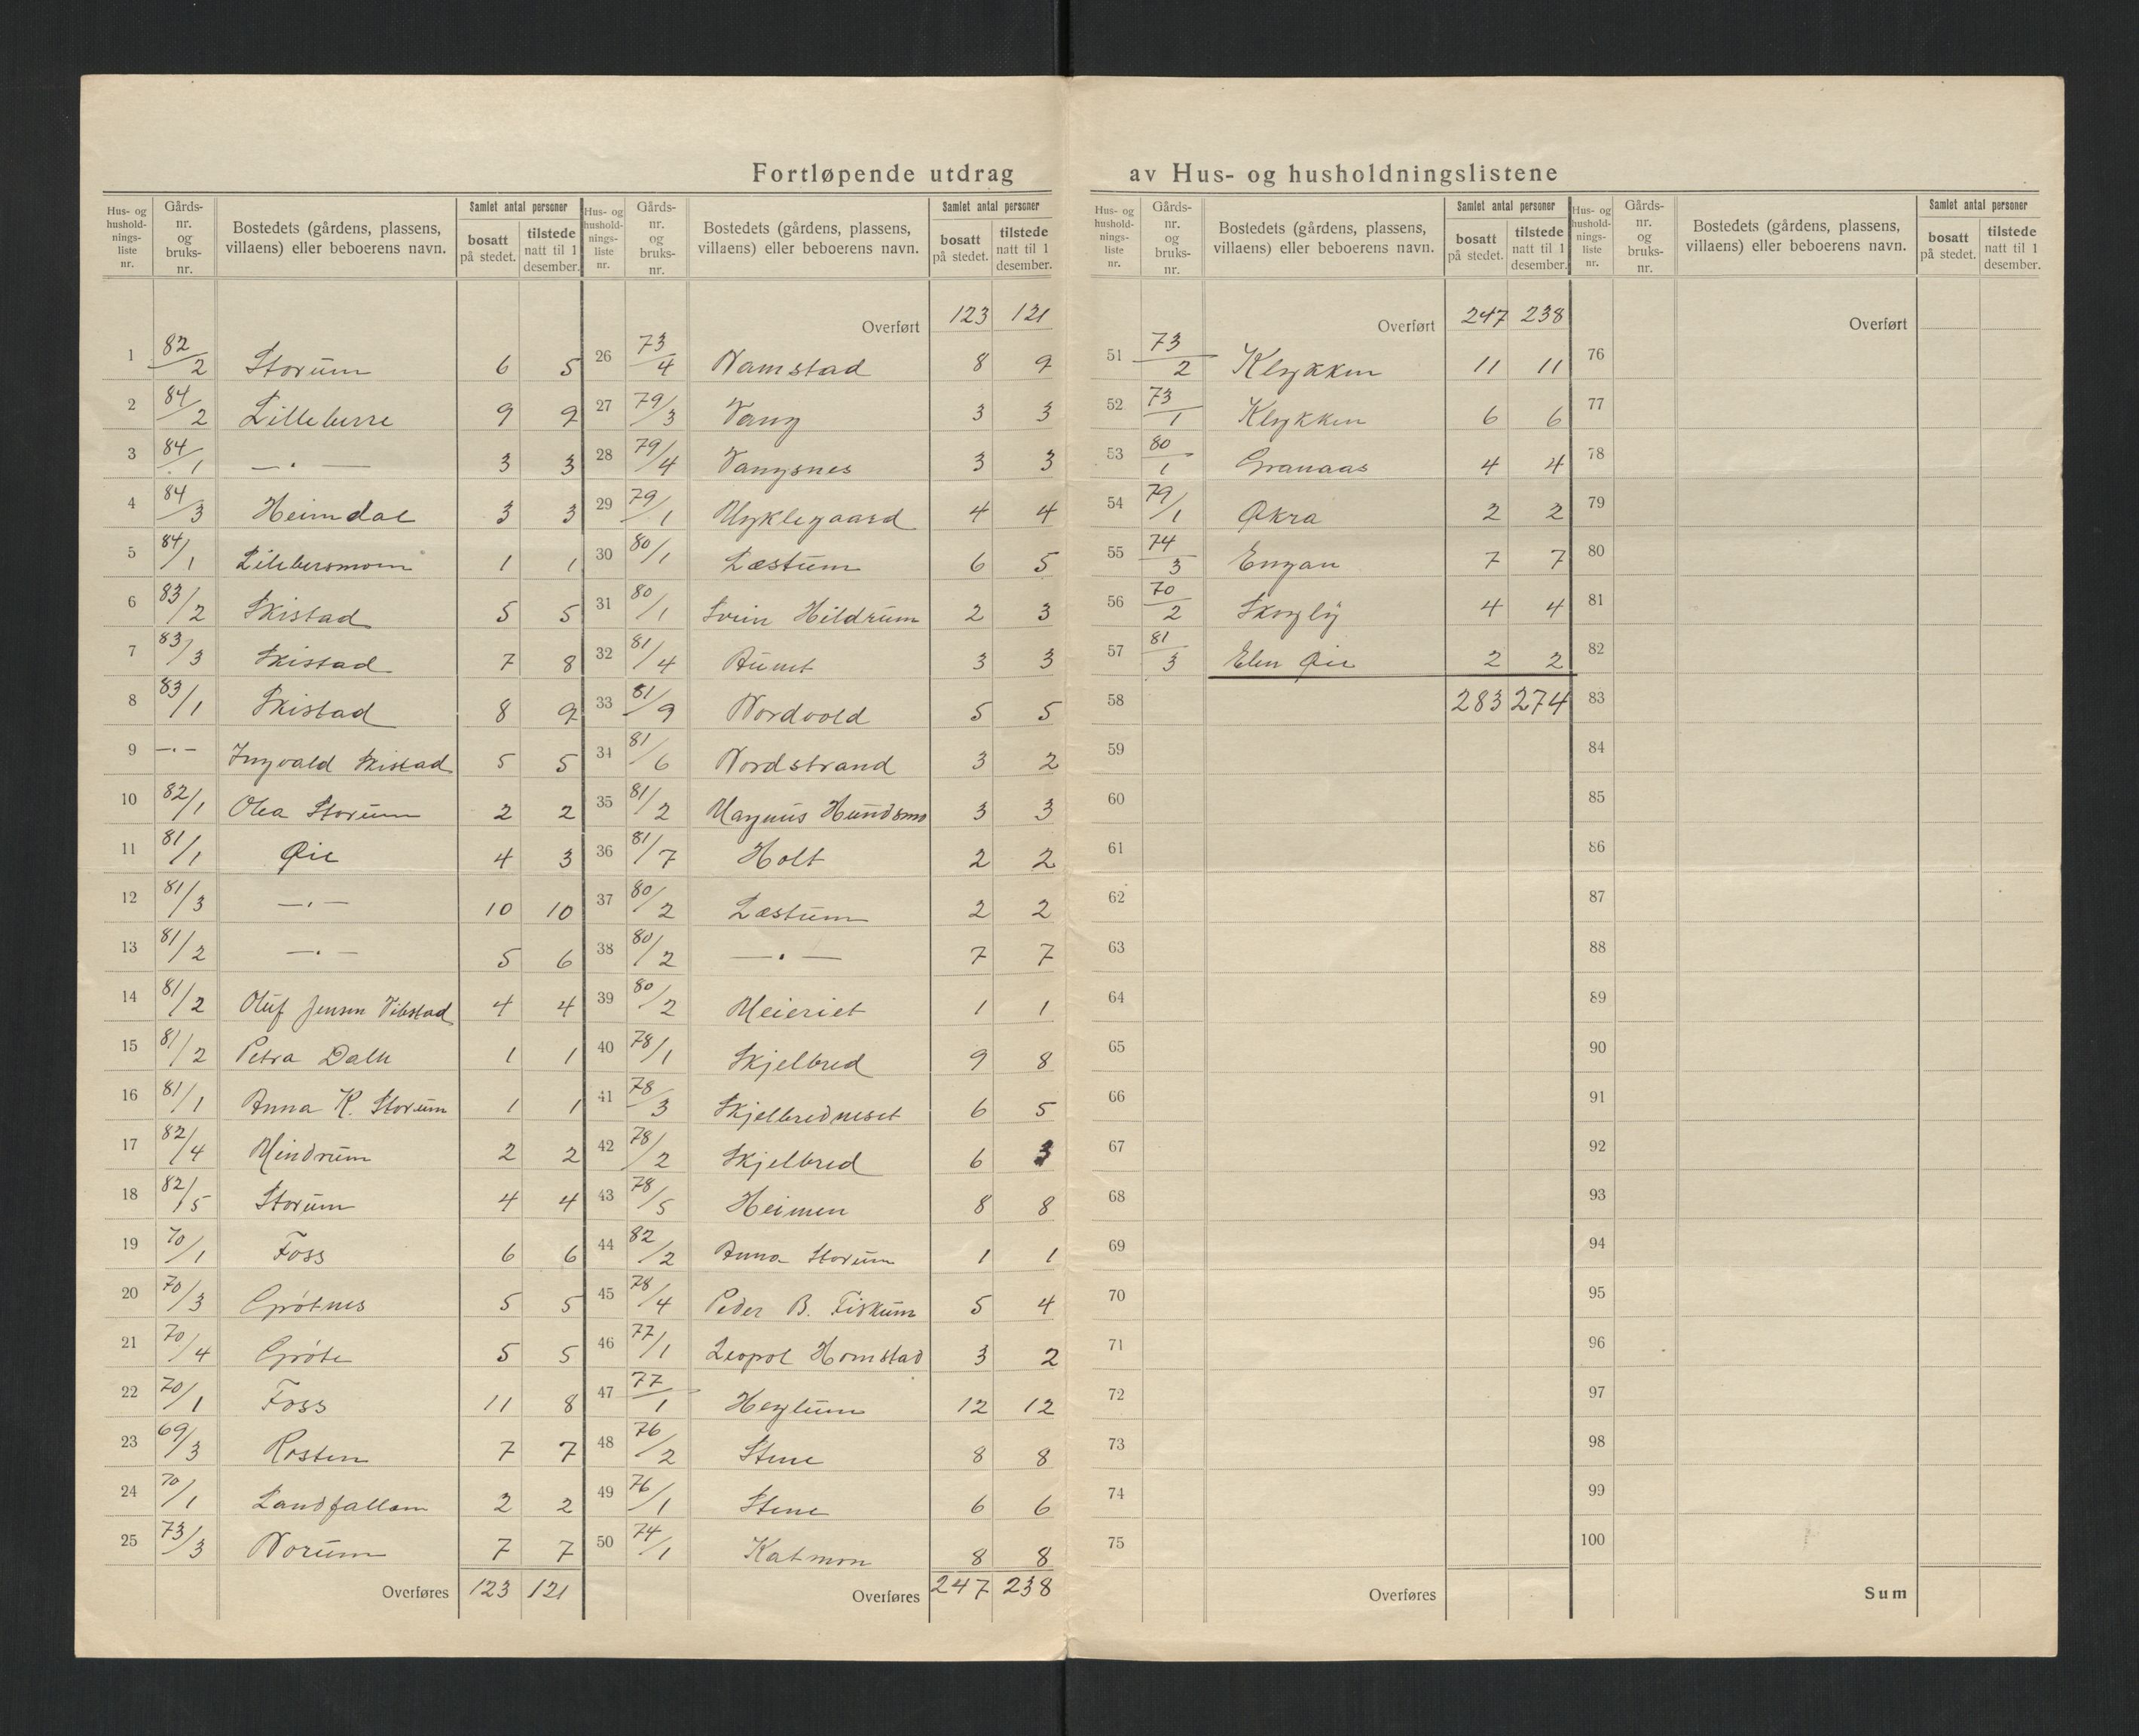 Fortløpende utdrag av Hus- og husholdningslistene
Hus- og hushold-nings-liste nr. Gårds-nr. og bruks-nr. Bostedets (gårdens, plassens, villaens) eller beboerens navn. Samlet antal personer bosatt på stedet. tilstede natt til 1 desember.
1 82/2 Storum 6 5
2 84/2 Lilleberre 9 9
3 84/1 —·— 3 3
4 84/3 Heimdal 3 3
5 84/1 1 1
6 83/2 Skistad 5 5
7 83/3 Skistad 7 8
8 83/1 Skistad 8 9
9 —·— Ingvald Skistad 5 5
10 82/1 Olea Storum 2 2
11 81/1 Øie 4 3
12 81/3 —·— 10 10
13 81/2 —·— 5 6
14 81/2 Oluf Jensen Vibstad 4 4
15 81/2 Petra Dalu 1 1
16 81/1 Anna K. Storum 1 1
17 82/4 Mindrum 2 2
18 82/5 Storum 4 4
19 70/1 Foss 6 6
20 70/3 Grótnes 5 5
21 70/4 Gróte 5 5
22 70/1 Foss 11 8
23 69/3 Rosten 7 7
24 70/1 Landfallam 2 2
25 73/3 Norum 7 7
Overføres 123 121
Hus- og hushold-nings-liste nr. Gårds-nr. og bruks-nr. Bostedets (gårdens, plassens, villaens) eller beboerens navn. Samlet antal personer bosatt på stedet. tilstede natt til 1 desember.
Overført 123 121
26 73/4 Namstad 8 9
27 79/3 Vang 3 3
28 79/4 Vangsnes 3 3
29 79/1 Myklegaard 4 4
30 80/1 Læstum 6 5
31 80/1 Svein Hildrum 2 3
32 81/4 Aunet 3 3
33 81/9 Nordvold 5 5
34 81/6 Nordstrand 3 2
35 81/2 Magnus Hundsmo 3 3
36 81/7 Holt 2 2
37 80/2 Læstum 2 2
38 80/2 —·— 7 7
39 80/2 Meieriet 1 1
40 78/1 Skjelbred 9 8
41 78/3 Skjelbredneset 6 5
42 78/2 Skjelbred 6 3
43 78/5 Heimen 8 8
44 82/2 Anna Storum 1 1
45 78/4 Peder B. Fiskum 5 4
46 77/1 Leopol Homstad 3 2
47 77/1 Heglum 12 12
48 76/2 Stene 8 8
49 76/1 Stene 6 6
50 74/1 Katmon 8 8
Overføres 247 238
Hus- og hushold-nings-liste nr. Gårds-nr. og bruks-nr. Bostedets (gårdens, plassens, villaens) eller beboerens navn. Samlet antal personer bosatt på stedet. tilstede natt til 1 desember.
Overført 247 238
51 73/2 Klykken 11 11
52 73/1 Klykken 6 6
53 80/1 Granaas 4 4
54 79/1 Økra 2 2
55 74/3 Engan 7 7
56 70/2 Skogly 4 4
57 81/3 Elen Øie 2 2
58 283 274
59
60
61
62
63
64
65
66
67
68
69
70
71
72
73
74
75
Overføres
Hus- og hushold-nings-liste nr. Gårds-nr. og bruks-nr. Bostedets (gårdens, plassens, villaens) eller beboerens navn. Samlet antal personer bosatt på stedet. tilstede natt til 1 desember.
Overført
76
77
78
79
80
81
82
83
84
85
86
87
88
89
90
91
92
93
94
95
96
97
98
99
100
Sum